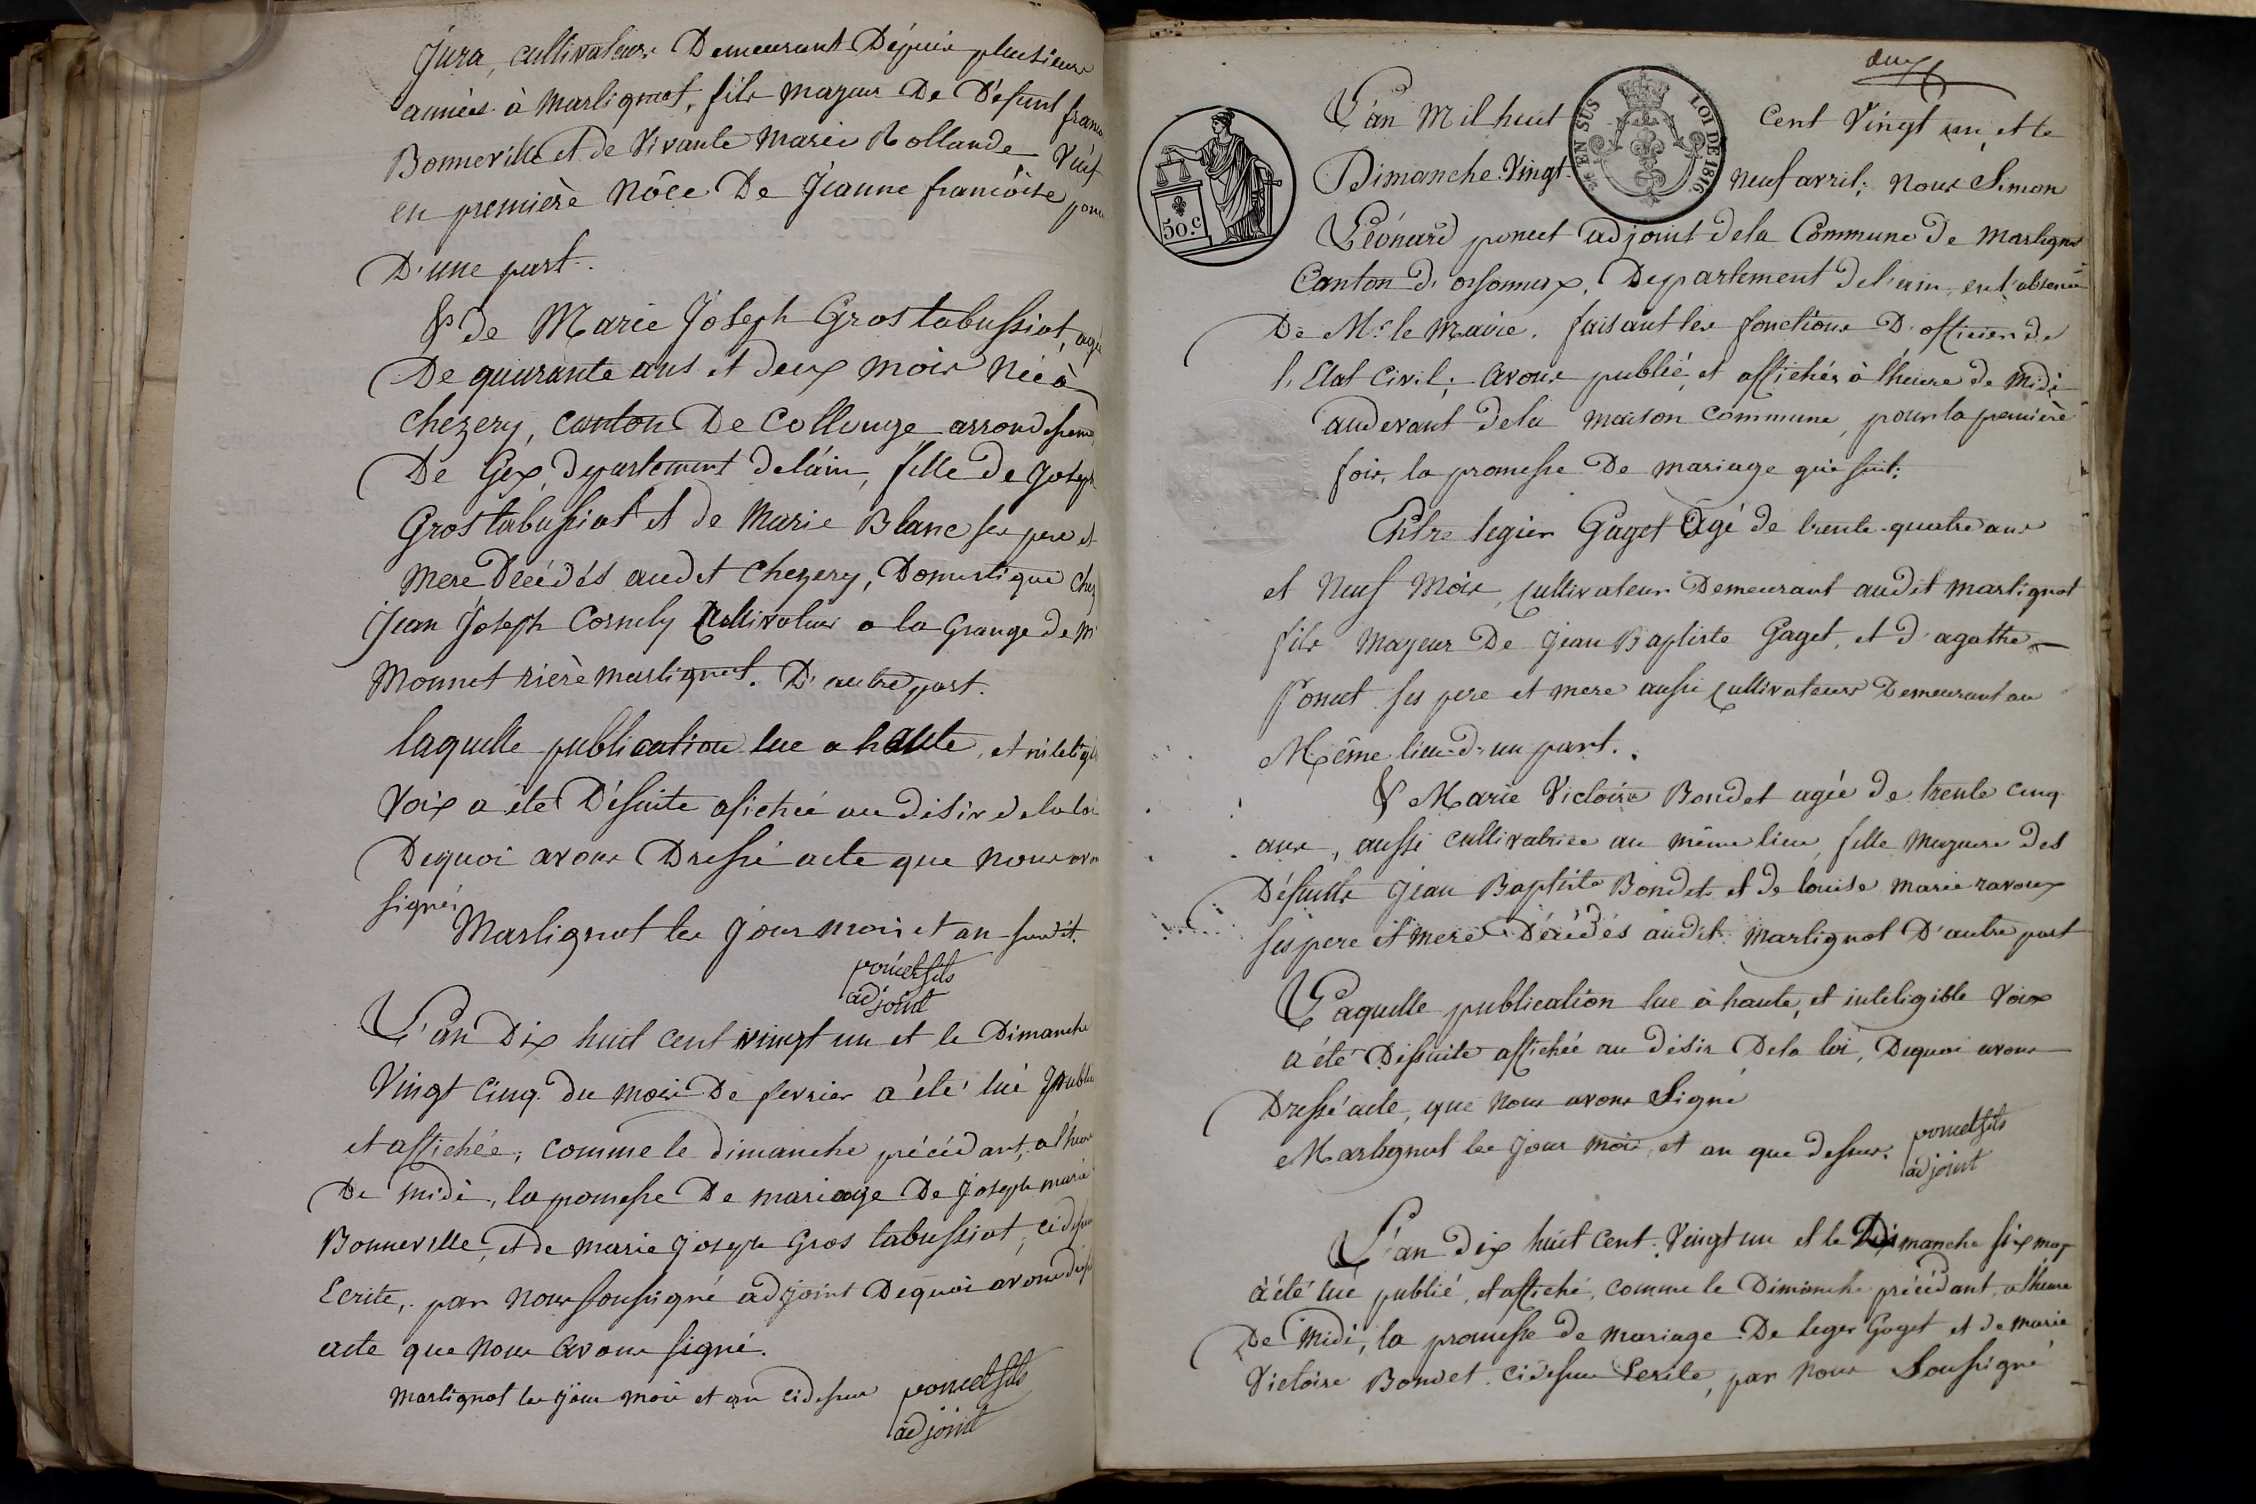 Jura, cultivateur Demeurant Dépuis plusieurs
années à Martignat, fils majeur De Défunt
Bonneville et de Vivante Marie Rollande Veuf
en première Nôce De Jéanne francôise
D'une part.
& de Marie Joseph Gros tabussiat, agée
De quarante ans et deux mois Née à
Chezery, canton De Collonge arrondissem
De Gex, departement deláin, fille de Joseph
Gros tabussiat et de Marie Blanc ses pere et
mere Décédés audit Chezery, Domestique chez
Jean Joseph Cornely Cultivateur a la Grange de Mr
Monnet rière martignat. D'autre part.
laquelle publication lue a haute, et inteligi
Voix a été Désuite afichée au désir de la loi
Dequoi avons Dressé acte que nous avon
signé,
Martignat les jour mois et an susdit.
poncet fils
adjoint
L'an Dix huit cent vingt un et le Dimanche
Vingt cinq du mois De fevrier a été lué publié
et affichée, comme le dimanche précédant, a lheure
De midi, la pomesse De mariage De Joseph marie
Bonneville, et de marie Joseph Gros tabussiat, cidessus
Ecrite, par nous soussigné adjoint Dequoi avons dressé
acte que nous avons signé.
Martignat les jour mois et an cidessus poncet fils
adjoint
deux
L'an Mil huit cent Vingt un, et le
Dimanche Vingt- neuf avril; nous Simon
EN SUS LOI DE 1816
50.c
Léonard poncet adjoint dela Commune de Martignat
Canton d'oyonnax, Departement del'ain, en l'absence
De Mr. le Maire. faisant les fonctions D'officier de
l'Etat Civil; avons publié, et affichés à lheure de Midi
audevant dela maison Commune, pour la premiere
fois, la promesse De mariage qui suit:
Entre legier Gaget âgé de trente-quatre ans
et Neuf Mois, cultivateur Demeurant audit Martignat
fils Majeur De Jean Baptiste Gaget, et d'agathe
Poncet ses pere et mere aussi cultivateurs Demeurant au
Même lieu d'un part.
& Marie Victoire Bondet agée de trente cinq
ans, aussi cultivatrice au même lieu, fille Majeure des
Défunts Jean Baptiste Bondet et de louise marie ravoux
ses pere et mere Décédés audit Martignat D'autre part
Laquelle publication lue à haute, et inteligible Voix
a été Désuite affichée au désir Dela loi, Dequoi avons
Dressé acte, que nous avons Signé
Martignat les jour mois, et an que dessus. poncet fils
adjoint
L'an dix huit cent Vingt un et le Dimanche six may
à été lué publié, et affiché, comme le Dimanche précédant, a lheure
De midi, la promesse de mariage De leger Gaget et de marie
Victoire Bondet cidessus Ecrite, par nous Soussigné